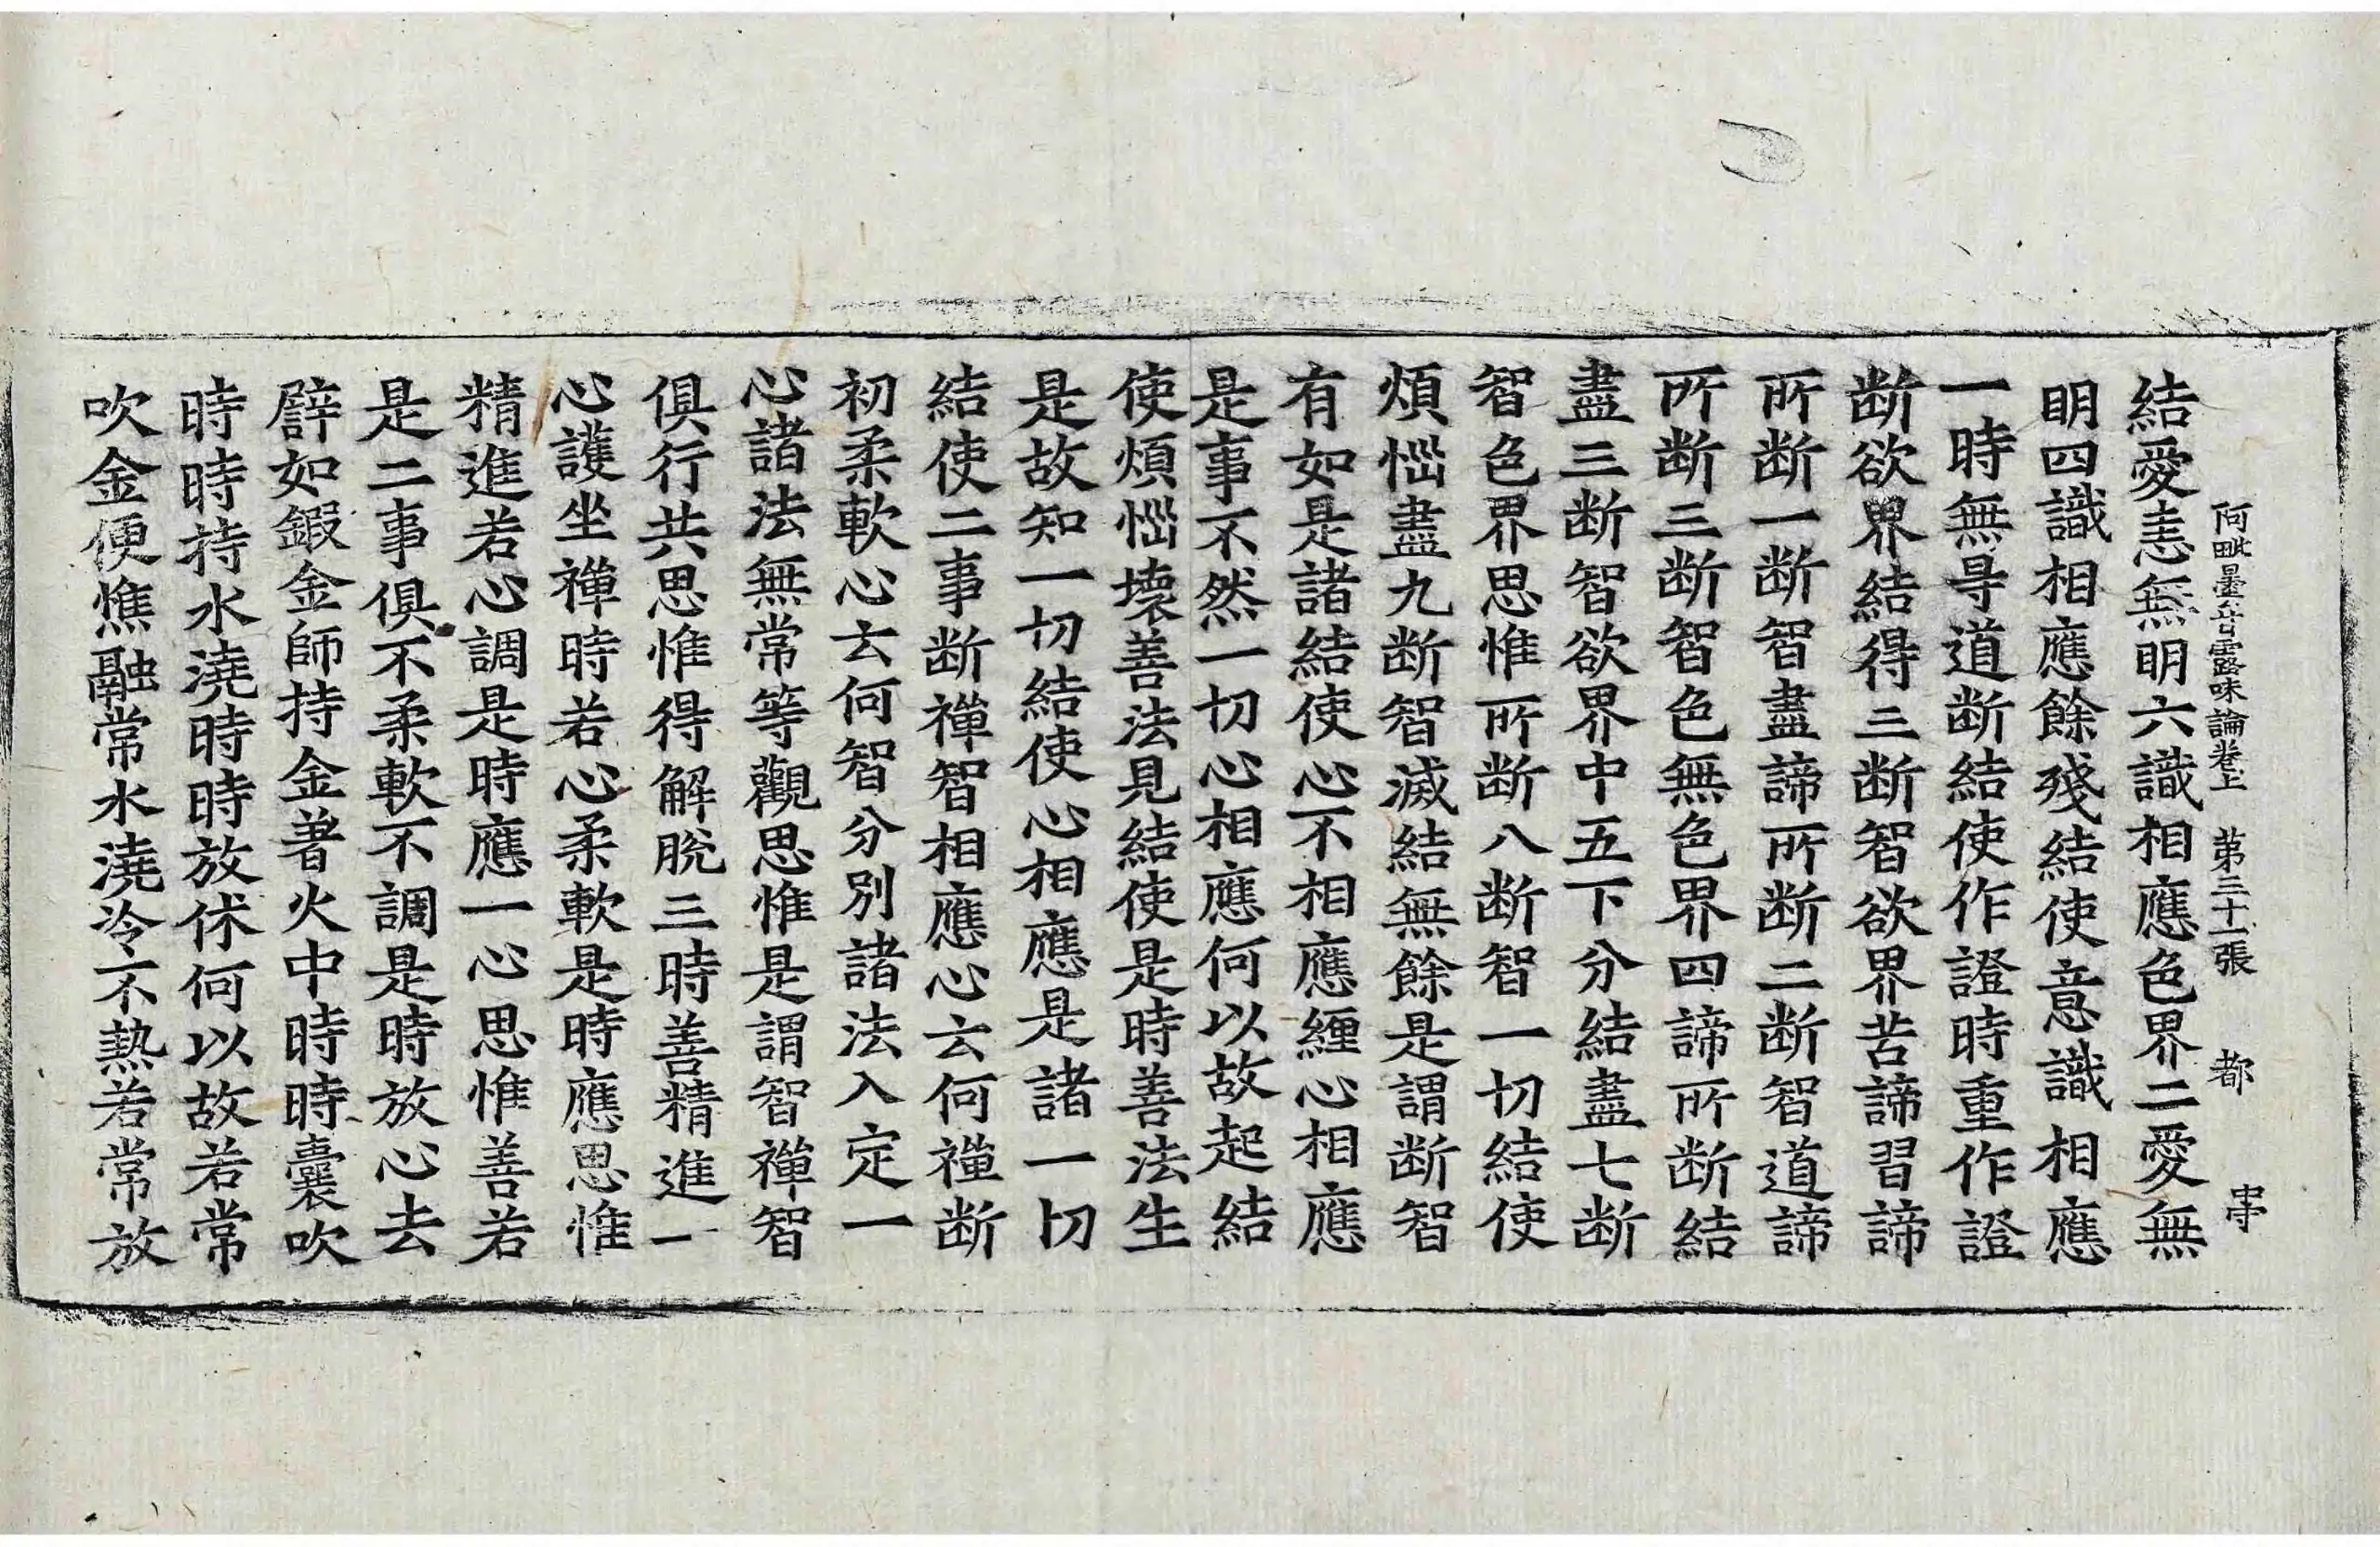 阿毗曇甘露味論卷上　第三十一張　都
結愛恚無明六識相應色界二愛無
明四識相應餘殘結使意識相應
一時無㝵道断結使作證時重作證
断欲界結得三断智欲界苦諦習諦
所断一断智盡諦所断二断智道諦
所断三断智色無色界四諦所断結
盡三断智欲界中五下分結盡七断
智色界思惟所断八断智一切結使
煩惱盡九断智滅結無餘是謂断智
有如是諸結使心不相應纏心相應
是事不然一切心相應何以故起結
使煩惱壞善法見結使是時善法生
是故知一切結使心相應是諸一切
結使二事断禪智相應心云何禪断
初柔軟心云何智分別諸法入定一
心諸法無常等觀思惟是謂智禪智
俱行共思惟得解脫三時善精進一
心護坐禪時若心柔軟是時應思惟
精進若心調是時應一心思惟善若
是二事俱不柔軟不調是時放心去
譬如鍜金師持金著火中時時囊吹
時時持水澆時時放休何以故若常
吹金便燋融常水澆冷不熱若常放